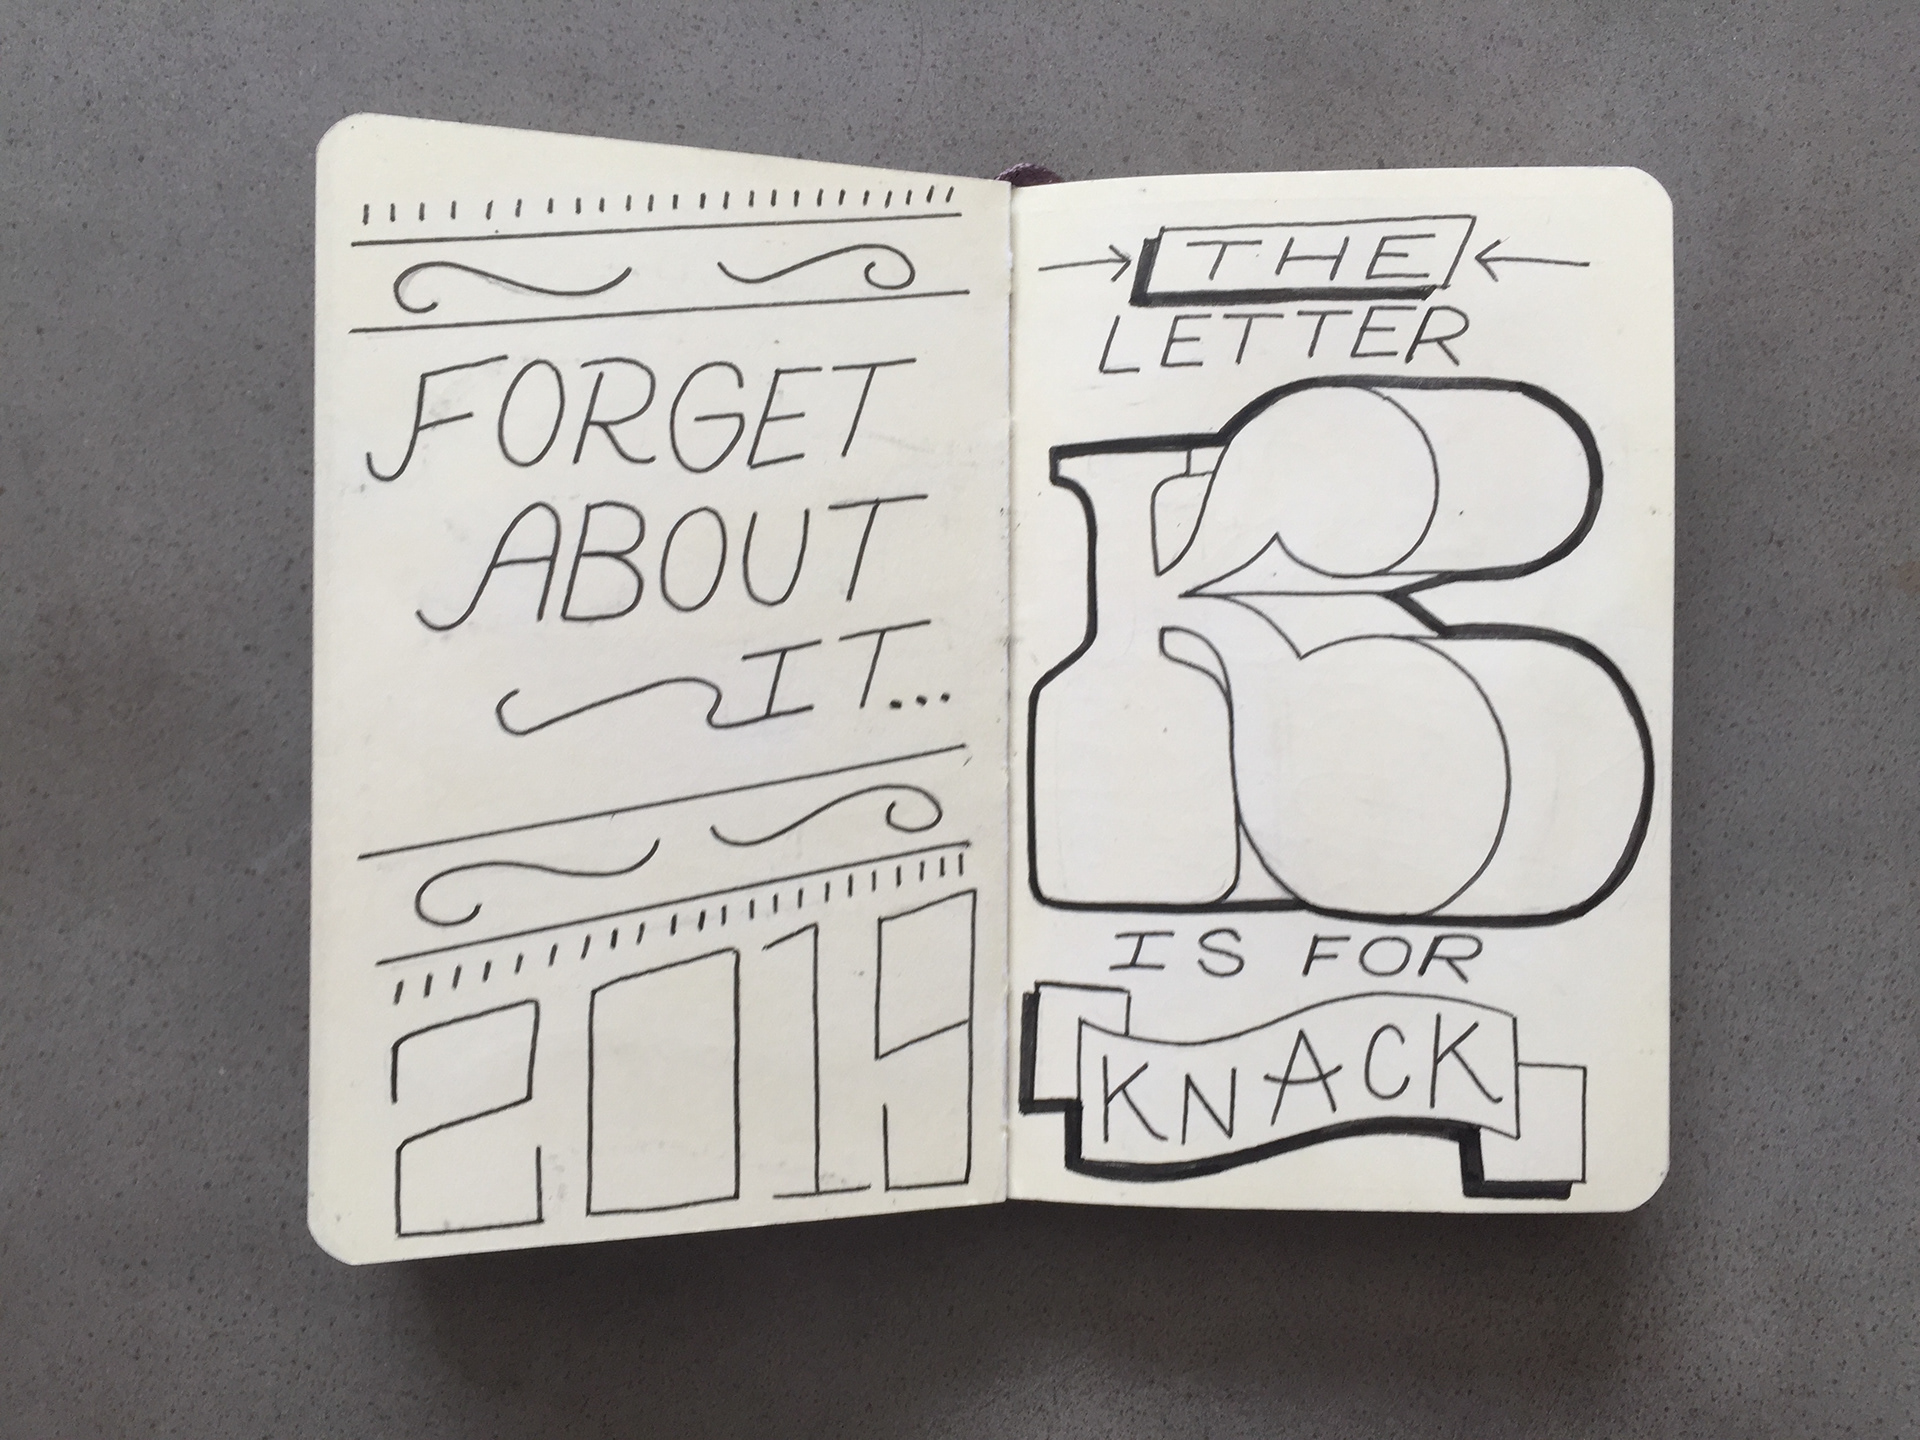 FORGET
ABOUT
IT...
2019
THE
LETTER
K
IS FOR
KNACK